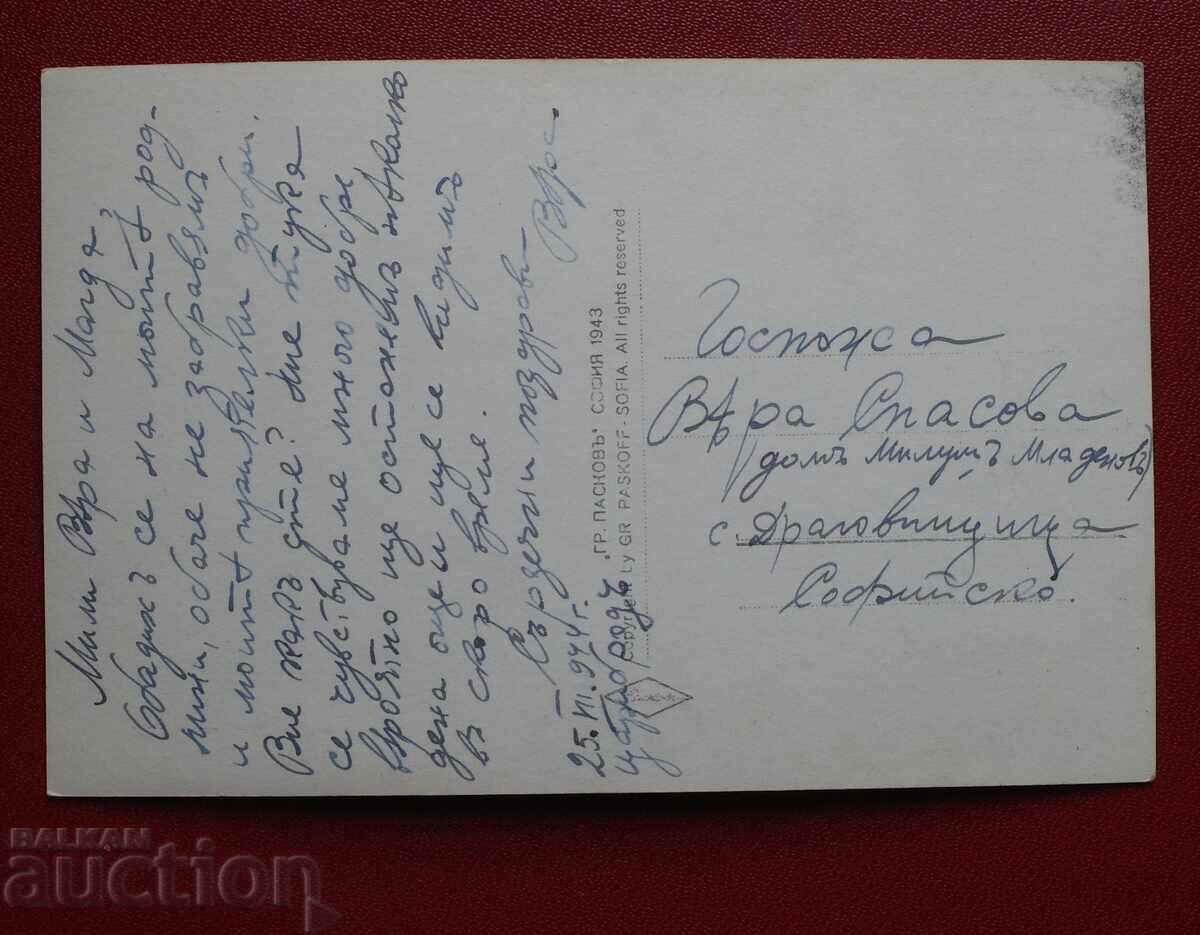 Мили Вѣра и Магдя,
Обадихъ се на моитѣ род-
нини, обаче не забравямъ
и моитѣ приятелки добри.
Вие какъ сте? Ние тукъ
се чувствуваме много добре
вѣроятно ще останемъ нѣколко
дена още и ще се видимъ
въ скоро време.
Сърдечни поздрави
25.VI.944 г.
Царибродъ
"ГР. ПАСКОВЪ" СОФИЯ 1943
Copyright by GR. PASKOFF - SOFIA. All rights reserved
Госпожа
Вѣра Спасова
домъ Милушъ Младеновъ)
с. Драговищица
Софийско.
BALKAN
auction